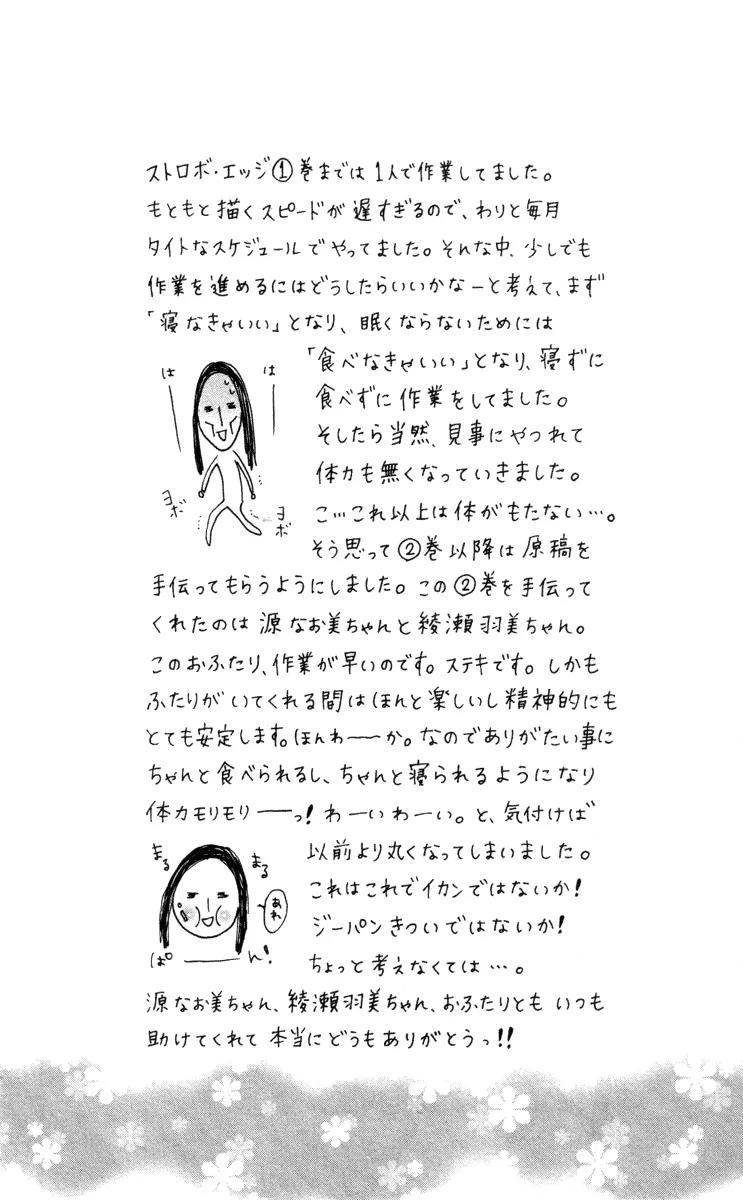 ストロボ・エッジ①巻までは1人で作業してました。
もともと描くスピードが遅すぎるので、わりと毎月
タイトなスケジュールでやってました。それな中、少しでも
作業を進めるにはどうしたらいいかなーと考えて、まず
「寝なきゃいい」となり、眠くならないためには
「食べなきゃいい」となり、寝ずに
食べずに作業をしてました。
そしたら当然、見事にやつれて
体力も無くなっていきました。
こ…これ以上は体がもたない…。
そう思って②巻以降は原稿を
は
は
ヨボ
ヨボ
手伝ってもらうようにしました。この②巻を手伝って
くれたのは源なお美ちゃんと綾瀬羽美ちゃん。
このおふたり、作業が早いのです。ステキです。しかも
ふたりがいてくれる間はほんと楽しいし精神的にも
とても安定します。ほんわーーか。なのでありがたい事に
ちゃんと食べられるし、ちゃんと寝られるようになり
体力モリモリーーっ!わーいわーい。と、気付けば
以前より丸くなってしまいました。
これはこれでイカンではないか!
ジーパンきついではないか!
ちょっと考えなくては…。
まる
まる
あれ
ぱーーん!
源なお美ちゃん、綾瀬羽美ちゃん、おふたりともいつも
助けてくれて本当にどうもありがとうっ!!